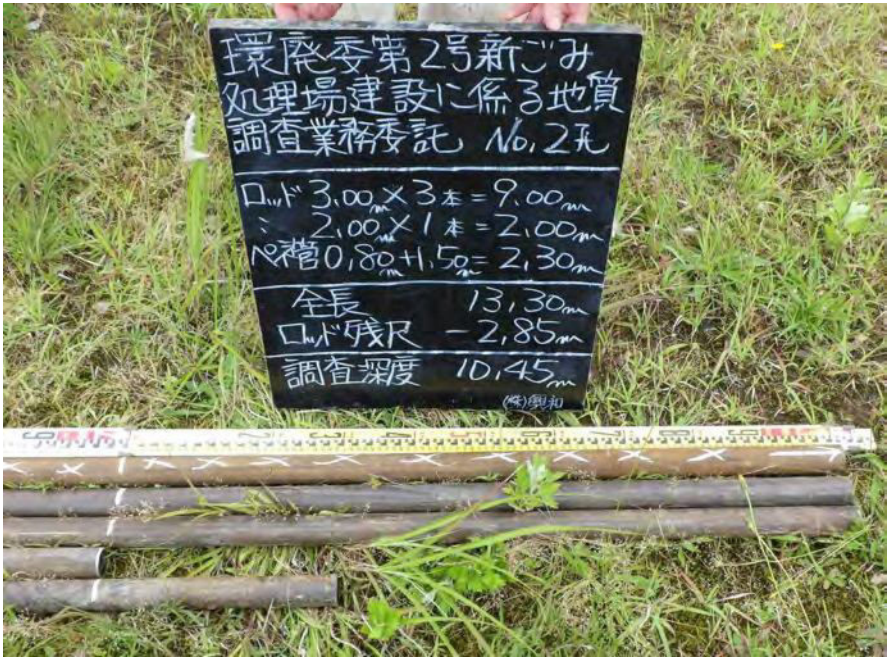 環廃委第2号新ごみ
処理場建設に係る地質
調査業務委託 No.2孔
ロッド 3.00m×3本=9.00m
〃 2.00m×1本=2.00m
0.80m+1.50m=2.30m
全長 13.30m
ロッド残尺 -2.85m
調査深度 10.45m
(株)興和
2 3 4 5 6 7 8 9